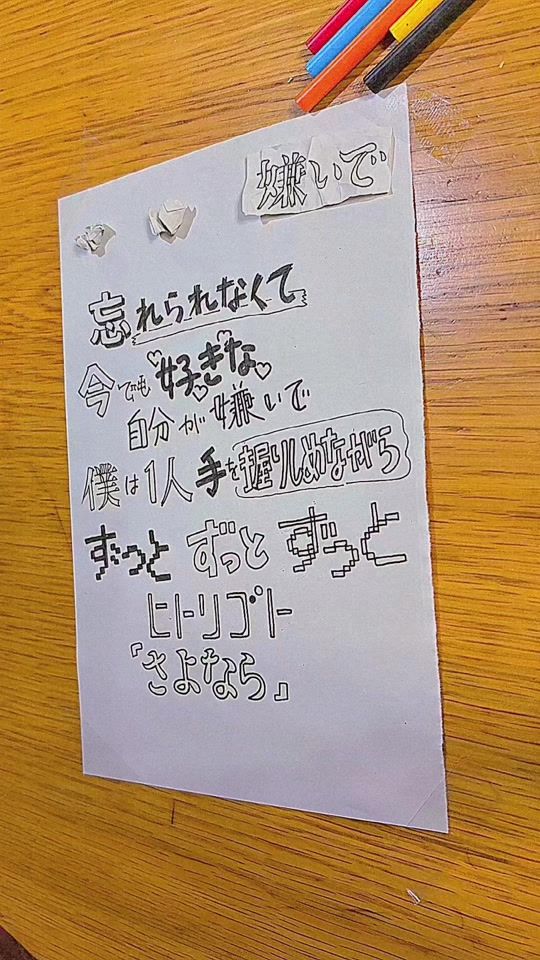 嫌いで
忘れられなくて
今でも好きな
自分が嫌いで
僕は1人手を握りしめながら
ずっとずっとずっと
ヒトリゴト
「さよなら」